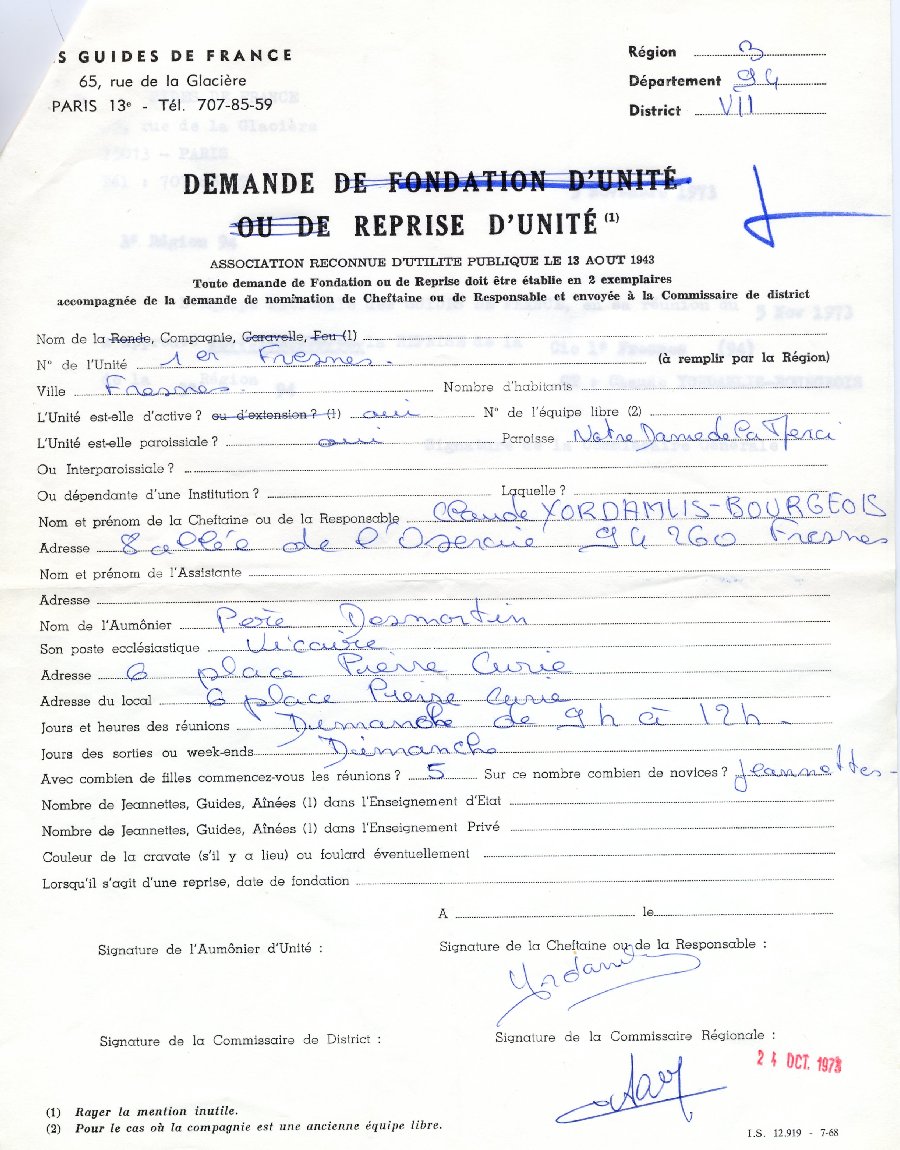 S GUIDES DE FRANCE
65, rue de la Glacière
PARIS 13e - Tél. 707-85-59
Région 3
Département 94
District VII
DEMANDE DE FONDATION D'UNITÉ
OU DE REPRISE D'UNITÉ (1)
ASSOCIATION RECONNUE D'UTILITE PUBLIQUE LE 13 AOUT 1943
Toute demande de Fondation ou de Reprise doit être établie en 2 exemplaires
accompagnée de la demande de nomination de Cheftaine ou de Responsable et envoyée à la Commissaire de district
Nom de la Ronde, Compagnie, Caravelle, Feu (1)
N° de l'Unité 1er Fresnes. (à remplir par la Région)
Ville Fresnes Nombre d'habitants
L'Unité est-elle d'active ? ou d'extension ? (1) oui N° de l'équipe libre (2)
L'Unité est-elle paroissiale ? oui Paroisse Notre Dame de la Merci
Ou Interparoissiale ?
Ou dépendante d'une Institution ? Laquelle ?
Nom et prénom de la Cheftaine ou de la Responsable Claude YORDAMLIS-BOURGEOIS
Adresse 8 allée de l'Oseraie 94 260 Fresnes
Nom et prénom de l'Assistante
Adresse
Nom de l'Aumônier Père Desmortin
Son poste ecclésiastique Vicaire
Adresse 6 place Pierre Curie
Adresse du local 6 place Pierre Curie
Jours et heures des réunions Dimanche de 9h à 12h.
Jours des sorties ou week-ends Dimanche
Avec combien de filles commencez-vous les réunions ? 5 Sur ce nombre combien de novices ? Jeannettes.
Nombre de Jeannettes, Guides, Aînées (1) dans l'Enseignement d'Etat
Nombre de Jeannettes, Guides, Aînées (1) dans l'Enseignement Privé
Couleur de la cravate (s'il y a lieu) ou foulard éventuellement
Lorsqu'il s'agit d'une reprise, date de fondation
A le
Signature de l'Aumônier d'Unité :
Signature de la Cheftaine ou de la Responsable :
Signature de la Commissaire de District :
Signature de la Commissaire Régionale :
24 OCT. 1973
(1) Rayer la mention inutile.
(2) Pour le cas où la compagnie est une ancienne équipe libre.
I.S. 12.919 - 7-68